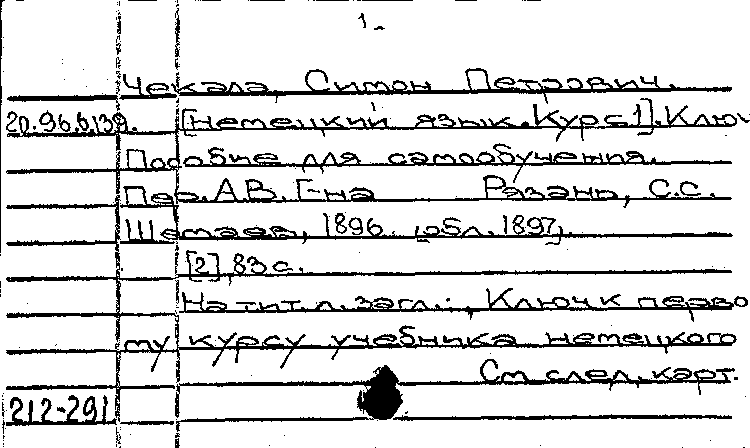 1.
Чекала, Симон Петрович.
20.96.6.139. [Немецкий язык. Курс 1]. Ключ
Пособие для самообучения.
Пер. А.В. Г-на Рязань, С.С.
Шемаев, 1896. [обл. 1897].
[2], 83 с.
На тит. л. загл.: Ключ к перво
му курсу учебника немецкого
См. след. карт.
212-291